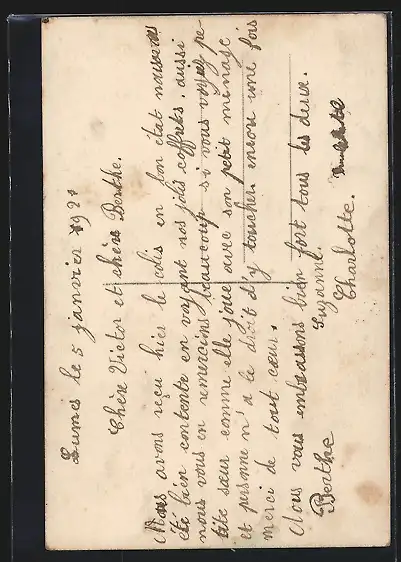 Lumes le 5 janvier 1921
Chers Victor et chère Berthe.
Nous avons reçu hier le colis en bon état nous avons
été bien contente en voyant nos jolis coffrets. aussi
nous vous en remercions beaucoup si vous voyez pe-
tite sœur comme elle joue avec son petit menage
et personne n'a le droit d'y toucher. encore une fois
merci de tout cœur.
Nous vous embrassons bien fort tous les deux.
Suzanne.
Berthe Charlotte.